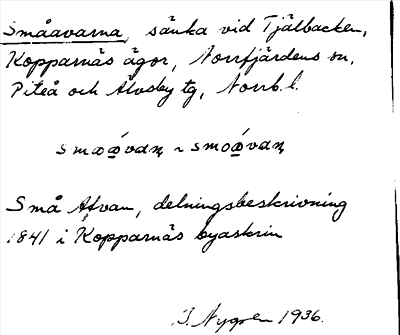 Småavarna, sänka vid Tjälbacken,
Kopparnäs ägor, Norrfjärdens sn,
Piteå och Älvsby tg, Norrb. l.
smoǿvaṇ ~ smoǿvaṇ
Små Afvan, delningsbeskrivning
1841 i Kopparnäs byaskrin
J. Nygren 1936.